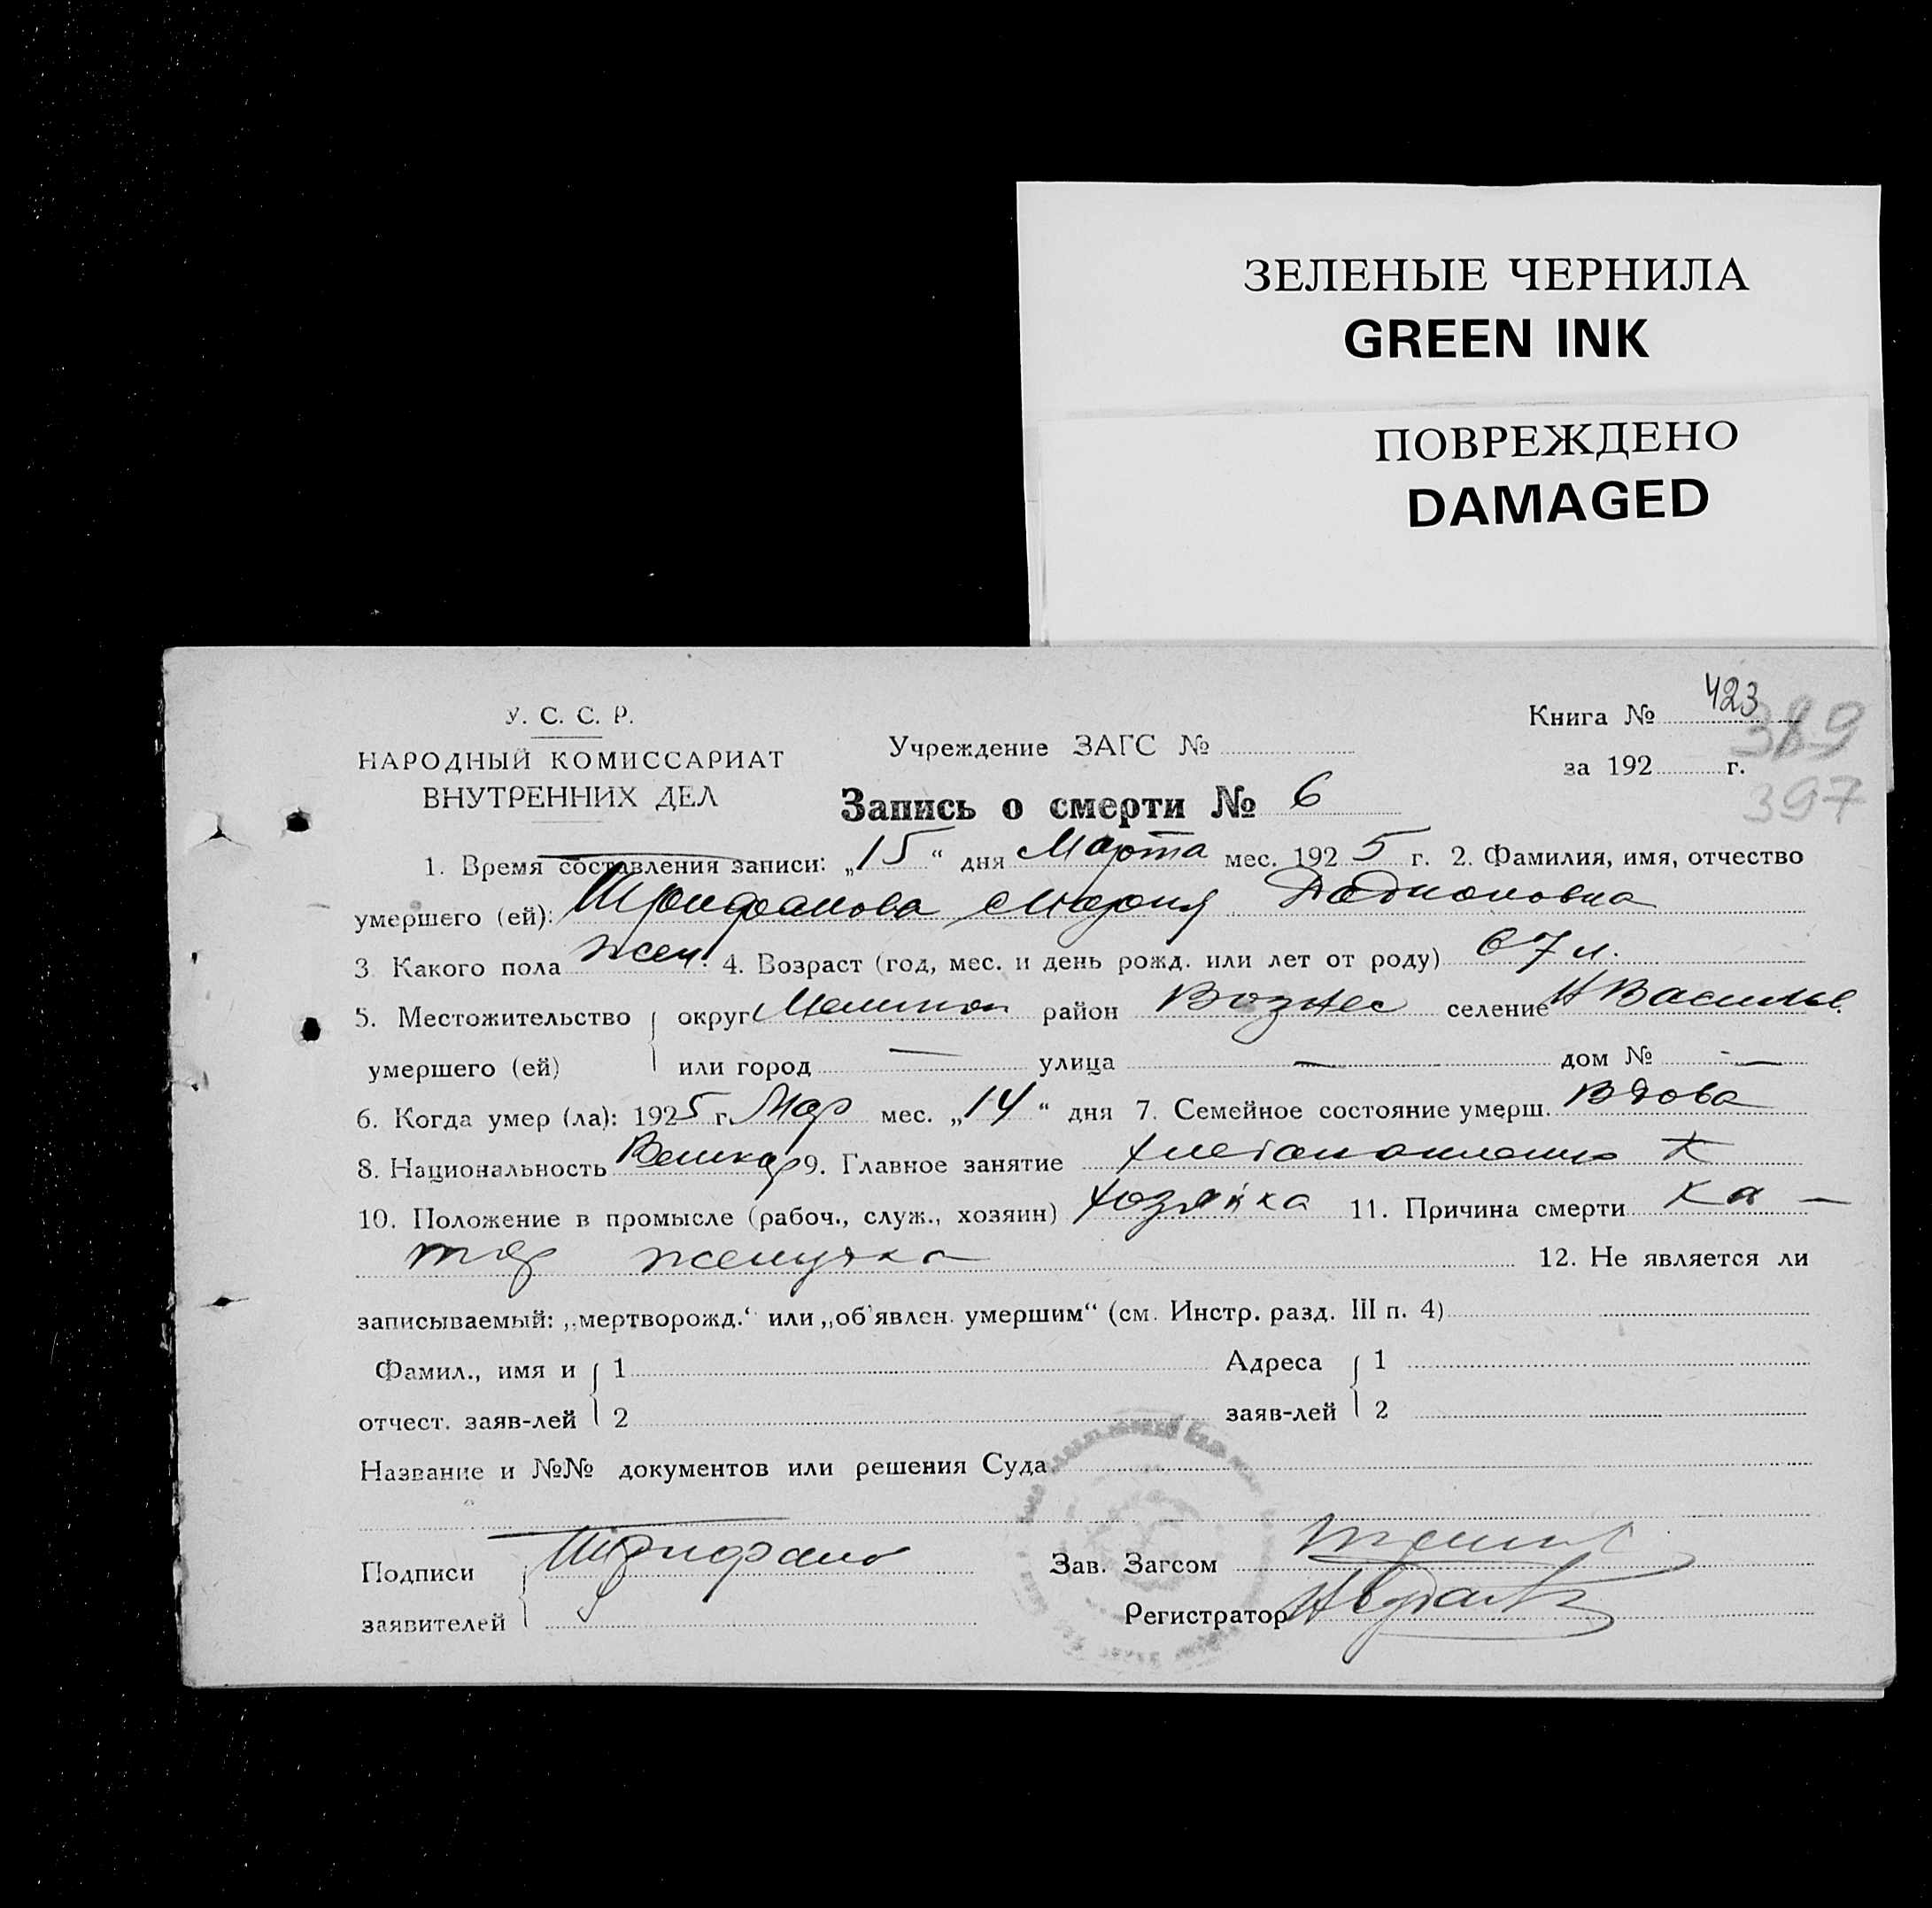 ЗЕЛЕНЫЕ ЧЕРНИЛА
GREEN INK
ПОВРЕЖДЕНО
DAMAGED
У. С. С. Р.
НАРОДНЫЙ КОМИССАРИАТ
ВНУТРЕННИХ ДЕЛ
Учреждение ЗАГС №
Книга № 423
389
за 192 г.
397
Запись о смерти № 6
1. Время составления записи: „15“ дня Марта мес. 1925 г. 2. Фамилия, имя, отчество
умершего (ей): Трифанова Мария
3. Какого пола жен. 4. Возраст (год, мес. и день рожд. или лет от роду) 67 л.
5. Местожительство округ Мелитоп район Вознес селение Н Васильев.
умершего (ей) или город — улица — дом № —
6. Когда умер (ла): 1925 г. Мар мес. „14“ дня 7. Семейное состояние умерш. Вдова
8. Национальность Великор 9. Главное занятие
10. Положение в промысле (рабоч., служ., хозяин) хозяйка 11. Причина смерти ка —
тар желудка 12. Не является ли
записываемый: „мертворожд.“ или „об'явлен. умершим“ (см. Инстр. разд. III п. 4)
Фамил., имя и 1 Адреса 1
отчест. заяв-лей 2 заяв-лей 2
Название и №№ документов или решения Суда
Подписи Трифано Зав. Загсом
заявителей Регистратор